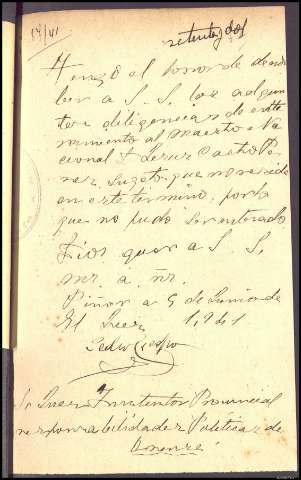 17/VI
setenta y dos
Tengo el honor de devol
ver a S. S. las adjun
tas diligencias de ente
ramiento al Maestro Na
cional D. Castro Pe
rez, sugeto que no reside
en este termino, por lo
que no pudo ser enterado
Dios guarde a S. S.
ms. a ñs.
Piñor a 9 de Junio de
El Juez 1,941
Pedro Crespo
Sr Juez Instructor Provincial
responsabilidades Politicas de
Orense